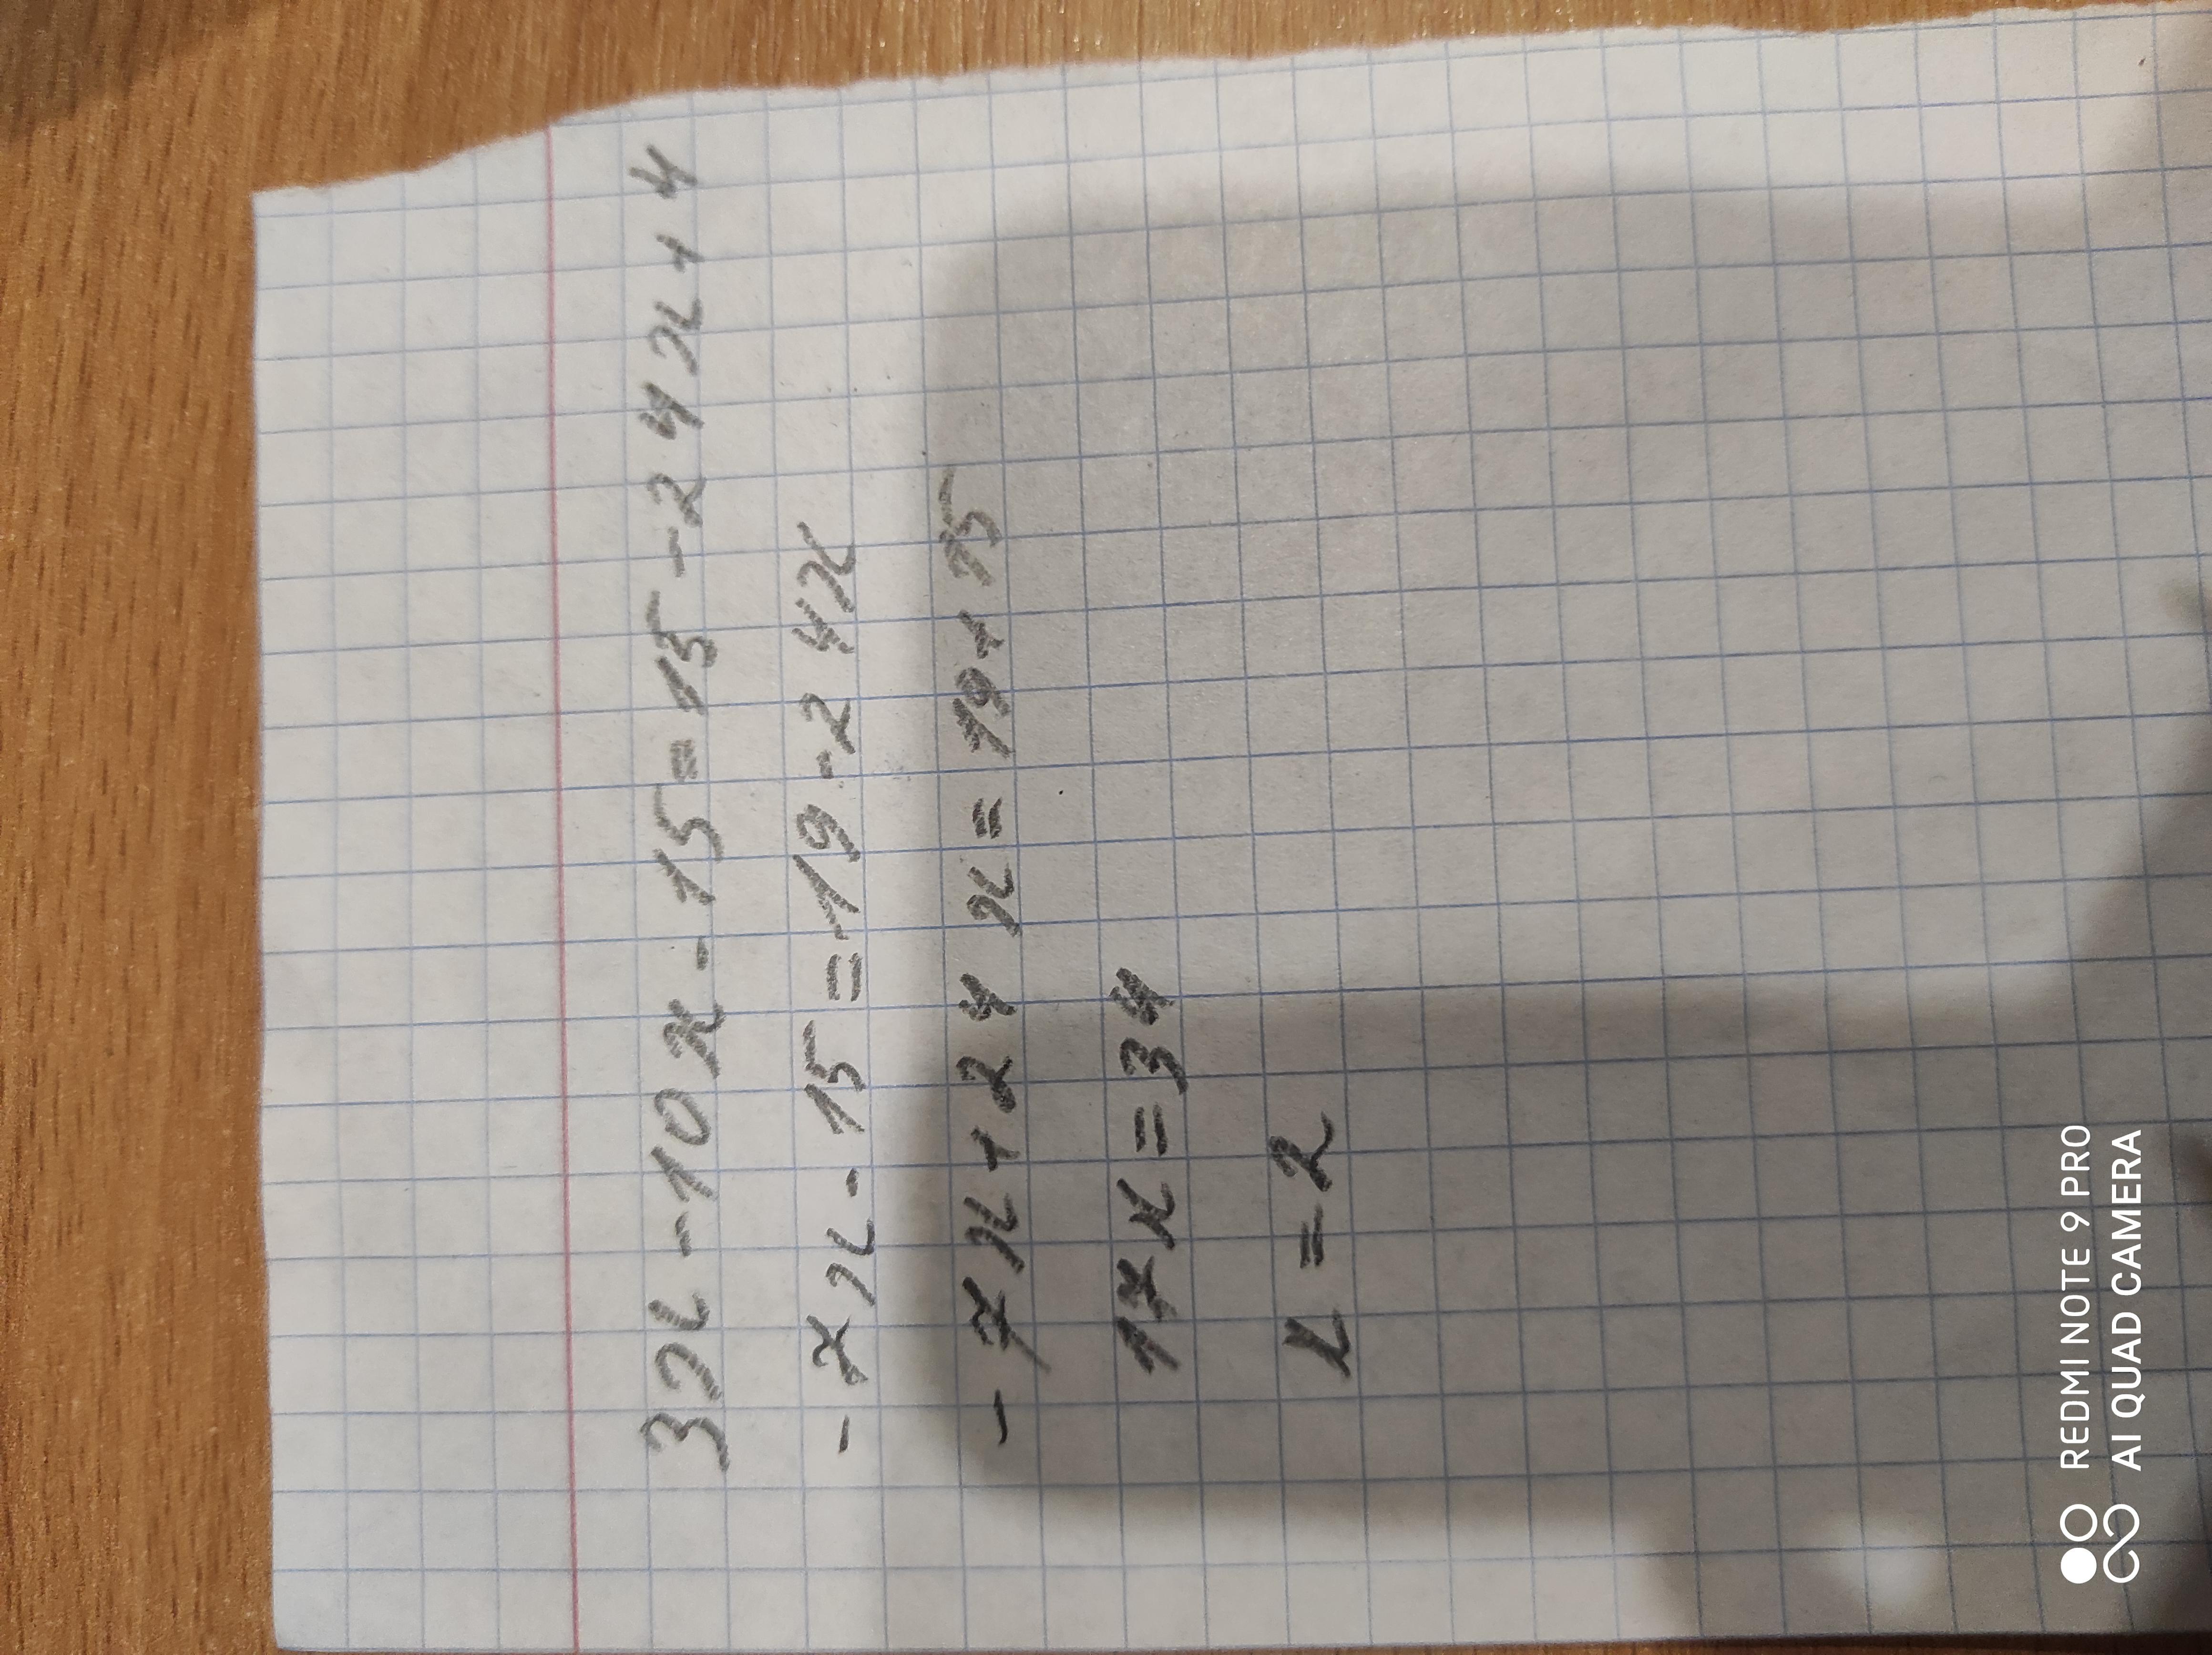 3x-10x-15=15-24x+4
-7x-15=19-24x
-7x+24x=19+15
17x=34
x=2
REDMI NOTE 9 PRO
AI QUAD CAMERA